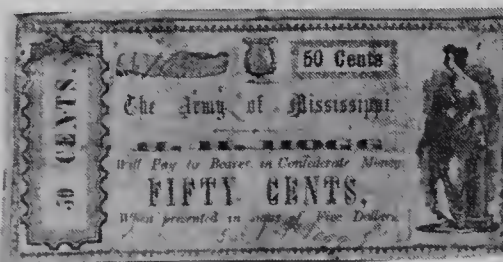 50 CENTS.
50 Cents
The Army of Mississippi,
Will Pay to Bearer in Confederate Money
FIFTY CENTS,
When presented in sums of Five Dollars.